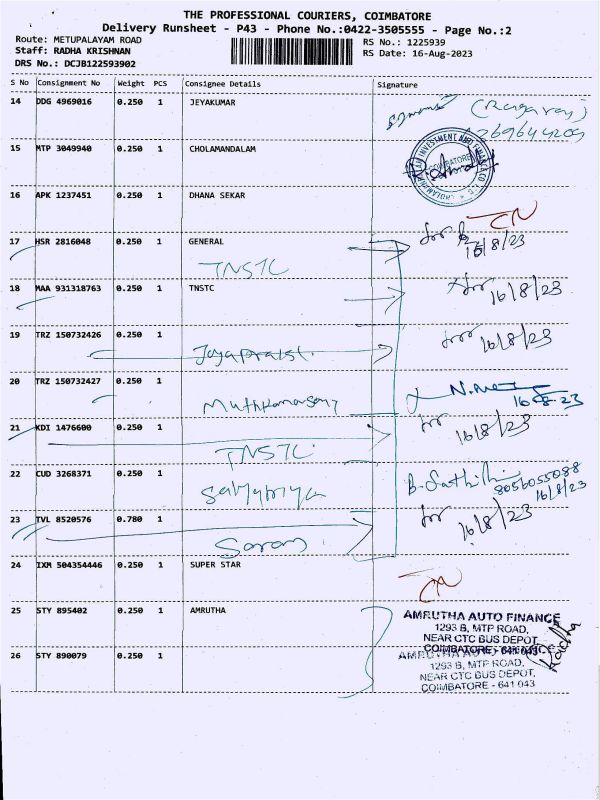 THE PROFESSIONAL COURIERS, COIMBATORE
Delivery Runsheet - P43 - Phone No.:0422-3505555 - Page No.:2
Route: METUPALAYAM ROAD
RS No.: 1225939
Staff: RADHA KRISHNAN
RS Date: 16-Aug-2023
DRS No.: DCJB122593902
S No Consignment No Weight PCS Consignee Details Signature
14 DDG 4969016 0.250 1 JEYAKUMAR
15 MTP 3049940 0.250 1 CHOLAMANDALAM
COIMBATORE
16 APK 1237451 0.250 1 DHANA SEKAR
17 HSR 2816048 0.250 1 GENERAL for
16/8/23
TNSTC
18 MAA 931318763 0.250 1 TNSTC
16/8/23
19 TRZ 150732426 0.250 1 for 16/8/23
20 TRZ 150732427 0.250 1
16-8-23
21 KDI 1476600 0.250 1 for 16/8/23
TNSTC
22 CUD 3268371 0.250 1
8056055088
16/8/23
23 TVL 8520576 0.780 1 for 16/8/23
24 IXM 504354446 0.250 1 SUPER STAR
25 STY 895402 0.250 1 AMRUTHA AMRUTHA AUTO FINANCE
1293 B, MTP ROAD,
NEAR CTC BUS DEPOT,
COIMBATORE - 641 043
26 STY 890079 0.250 1
1293 B, MTP ROAD,
NEAR CTC BUS DEPOT,
COIMBATORE - 641 043
Radha